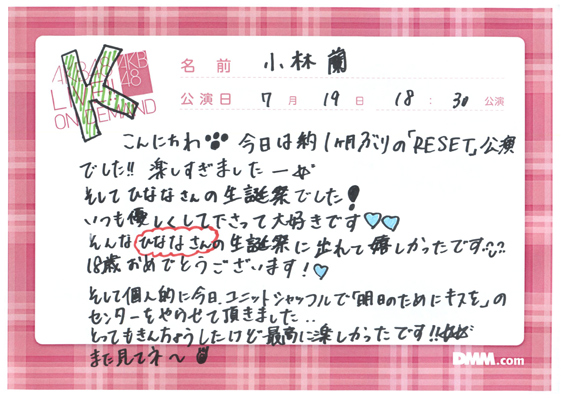 K
AKB48
LIVE!!
ON DEMAND
AKB
48
名前 小林蘭
公演日 7月19日 18:30公演
こんにちわ 今日は約1ヶ月ぶりの「RESET」公演
でした!! 楽しすぎましたー
そしてひななさんの生誕祭でした!
いつも優しくして下さって大好きです
そんなひななさんの生誕祭に出れて嬉しかったです
18歳おめでとうございます!
そして個人的に今日、ユニットシャッフルで「明日のためにキスを」の
センターをやらせて頂きました..
とってもきんちょうしたけど最高に楽しかったです!!
また見てネ〜
DMM.com